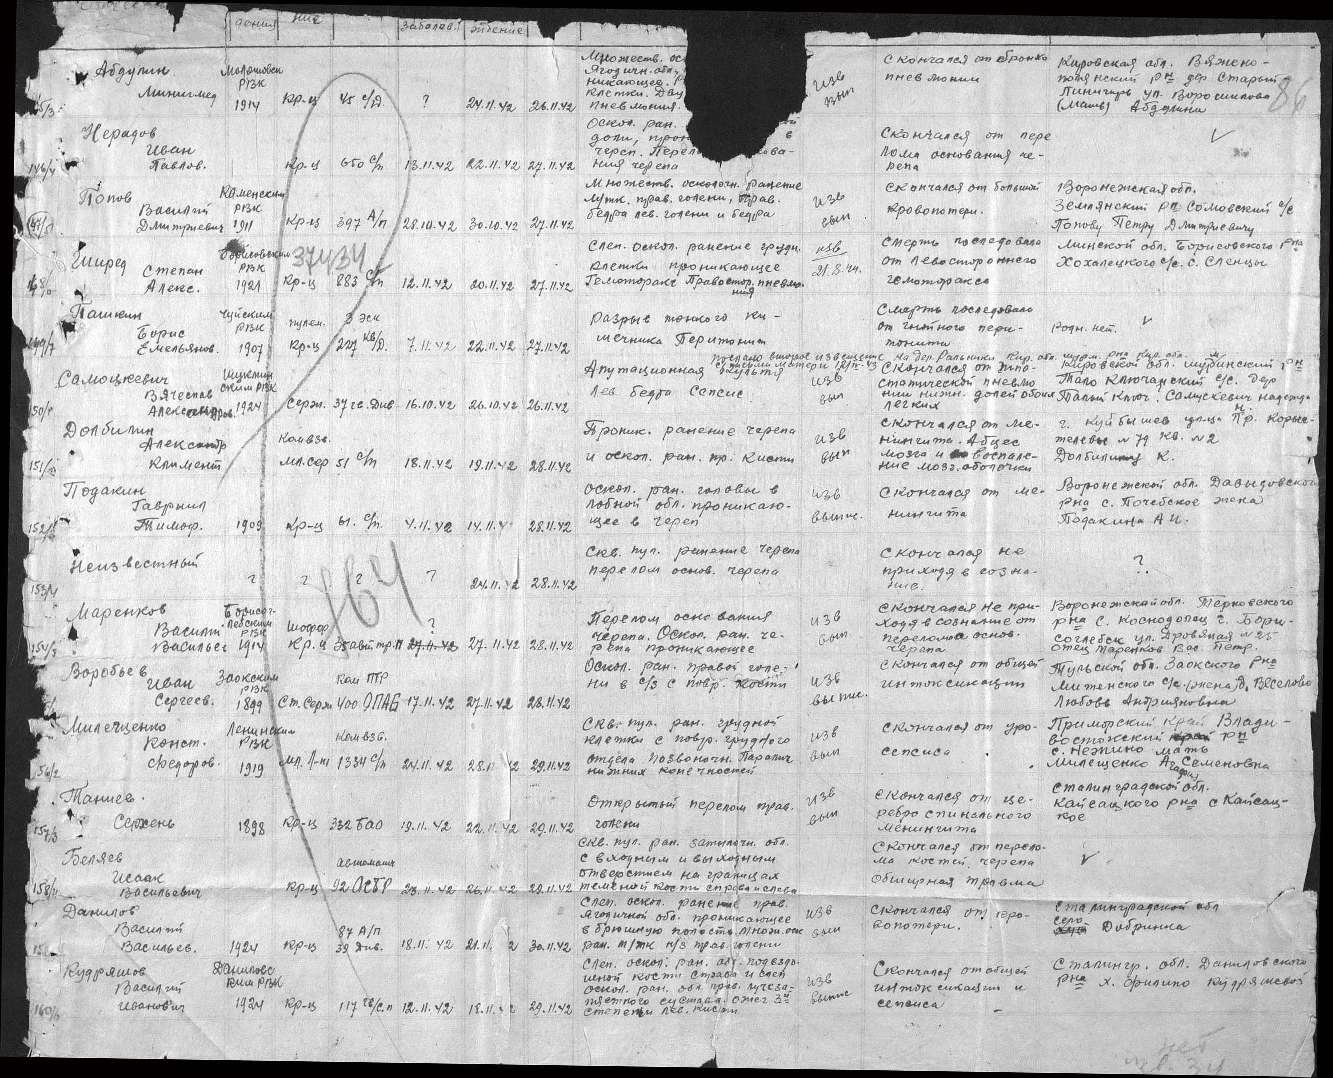 дения ние Заболев. Эткение
Абдулин
Минигмед
РВК
1914 кр-ц 45 с/д ? 24.11.42 26.11.42
Множеств. ос
Ягодичн. обл.
никающее.
клетки. Дву
пневмония.
изв
вып
Скончался от бронхо
пневмонии
Кировская обл. Вяжско-
полянский рн дер Старый
Пинигерь ул. Ворошилова
(мать) Абдулина
86
Нерадов
Иван
Павлов.
кр-ц 650 с/п 13.11.42 22.11.42 27.11.42
Оскол. ран.
доли, прон в
череп. Перел
ния черепа
Скончался от пере
лома основания че-
репа
Попов
Василий
Дмитриевич
Каменский
РВК
1911 кр-ц 397 А/п 28.10.42 30.10.42 27.11.42
Множеств. осколочн. ранение
мтк. прав. голени, прав.
бедра лев. голени и бедра
изв
вып
Скончался от большой
кровопотери.
Воронежская обл.
Землянский рн Сомовский с/с
Попову Петру Дмитриевичу
37434
Степан
Алекс.
Борисовским
РВК
1921 кр-ц 883 с/п 12.11.42 20.11.42 27.11.42
Слеп. оскол. ранение грудн.
клетки проникающее
Гемоторакс Правостор. пневмо-
ния
изв
21.8.44.
Смерть последовала
от левостороннего
гемоторакса
Минской обл. Борисовского рна
Хохалецкого с/с. с. Сленцы
Пашкин
Борис
Емельянов.
РВК
1907
пулем.
кр-ц 3 эск
227 кв/д. 7.11.42 22.11.42 27.11.42
Разрыв тонкого ки-
шечника Перитонит
Смерть последовало
от гнойного пери-
тонита
Родн. нет.
послано второе извещение
Самоцкевич
Вячеслав
Александров.
РВК
1924 Серж. 37 гв. Див. 16.10.42 26.10.42 26.11.42
Ампутационная культя
Лев. бедра Сепсис.
изв
вып
Скончался от гипо-
статической пневмо
нии нижн. долей обоих
легких
Кировской обл. рн
Мало Ключанский с/с. дер
Малый ключ.
Долбилин
Александр
Климент
Ком взв.
мл. сер 51 с/п 18.11.42 19.11.42 28.11.42
Проник. ранение черепа
и оскол. ран. пр. кисти
изв
вып
Скончался от ме-
нингита. Абцес
мозга и воспале-
ние мозг. оболочки
г. Куйбышев улица Пр. Корые-
телевы №79 кв. №2
Долбилину К.
Подакин
Гавриил
Тимоф. 1903 кр-ц 61. с/п 4.11.42 14.11.4 28.11.42
Оскол. ран. головы в
лобной обл. проникаю-
щее в череп
изв
выпис.
Скончался от ме-
нингита
Воронежской обл. Давыдовской
рна с. Почебское жена
Подакина А И.
Неизвестный
? ? ? ? 24.11.42 28.11.42
Скв. пул. ранение черепа
перелом основ. черепа
Скончался не
приходя в созна-
ние.
?
764
Маренков
Василий
Васильев
Борисог-
лебским
РВК
1914
Шофер
кр. ц ? 27.11.42 28.11.42
Перелом основания
черепа. Оскол. ран. че-
репа проникающее
изв
вып.
Скончался не при-
ходя в сознание от
перелома основ.
черепа
Воронежской обл. Терновского
рна с. Коснодолец г. Бори-
соглебск ул. Дровяная №25
отец Маренков Вас. Петр.
Воробьев
Иван
Сергеев.
Заокским
РВК
1899 Ст. Серж
ком ПТР
400 ОПАБ 17.11.42 27.11.42 28.11.42
Оскол. ран. правой голе-
ни в с/3 с повр. кости
изв
выпис.
Скончался от общей
интоксикации
Тульской обл. Заокского рна
Митенского с/с (жена) д. Веселово
Любовь Андрияновна
Милещенко
Конст.
Федоров.
Ленинским
РВК
1919
ком взв.
мл. л-нт 1334 с/п 24.11.42 28.11.42 29.11.42
Скв. пул. ран. грудной
клетки с повр. грудного
отдела позвоночн. Паралич
нижних конечностей
изв
вып
Скончался от уро-
сепсиса
Приморский край Влади-
востокский рн
с. Нежино мать
Милещенко Агафия Семеновна
Таниев.
Сержень 1898 кр-ц 332 бао 19.11.42 22.11.42 29.11.42
Открытый перелом прав.
голени
изв
вып
Скончался от це-
ребро спинального
менингита
Сталинградской обл.
Кайсацкого рна с Кайсац-
кое
Беляев
Исаак
Васильевич
кр-ц
автоматч
92 ОСБР 23.11.42 26.11.42 29.11.42
Скв. пул. ран. затылочн. обл.
с входным и выходным
отверстием на границах
теменой кости справа и слева
Скончался от перело-
ма костей черепа
обширная травма
Данилов
Василий
Васильев. 1924 кр-ц
87 А/п
39 див. 18.11.42 21.11. 2 30.11.42
Слеп. оскол. ранение прав.
ягодичной обл. проникающее
в брюшную полость. Множ. оск
ран. м/тк н/3 прав. голени
изв
вып
Скончался от кро-
вопотери.
Сталинградской обл
село
Добринка
Кудряшов
Василий
Иванович
Даниловс
ким РВК
1924 кр-ц 117 гв/с.п 12.11.42 18.11.42 29.11.42
Слеп. оскол. ран. обл. подвздо-
шной кости справа и слеп
оскол. ран. обл. прав. лучеза-
пястного сустава. ожег 3й
степени лев. кисти
изв
выпис
Скончался от общей
интоксикации и
сепсиса
Сталингр. обл. Даниловского
рна х. Филино Кудряшовой
нет